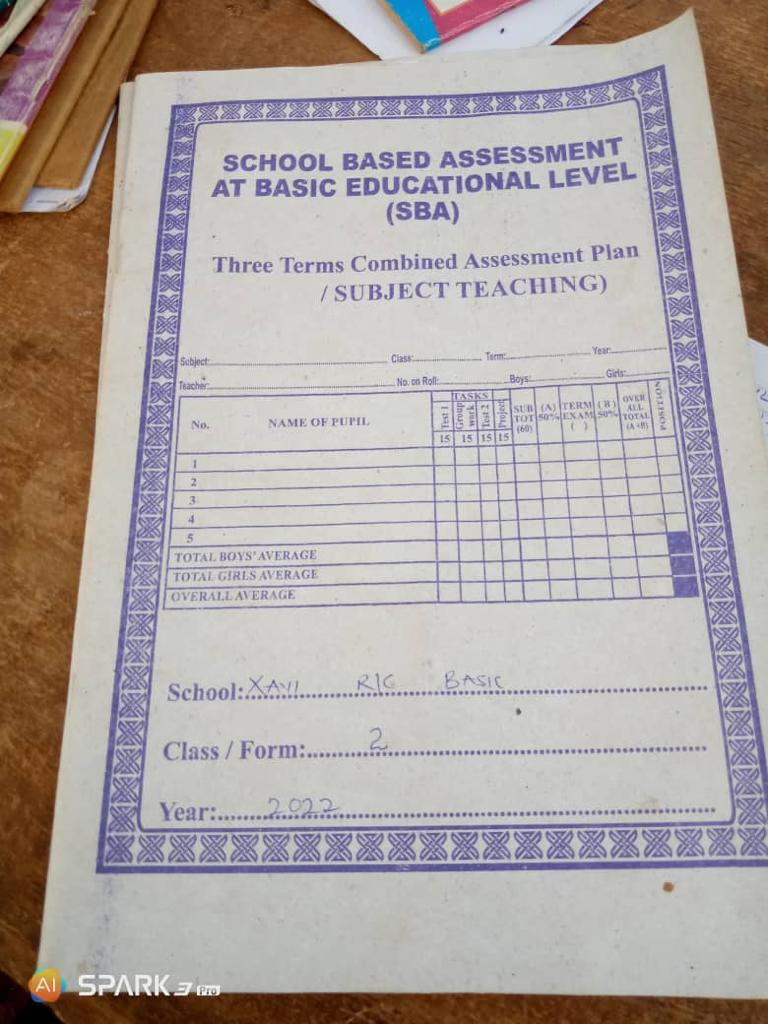 SCHOOL BASED ASSESSMENT
AT BASIC EDUCATIONAL LEVEL
(SBA)
Three Terms Combined Assessment Plan
/ SUBJECT TEACHING)
Subject: Class: Term: Year:
Teacher: No. on Roll: Boys: Girls:
No. NAME OF PUPIL TASKS Test 1 Group work Test 2 Project SUB TOT (60) (A) 50% TERM EXAM ( ) (B) 50% OVER ALL TOTAL (A+B) POSITION
15 15 15 15
1
2
3
4
5
TOTAL BOYS' AVERAGE
TOTAL GIRLS AVERAGE
OVERALL AVERAGE
School: XAVI R/C BASIC
Class / Form: 2
Year: 2022
AI SPARK 3 Pro